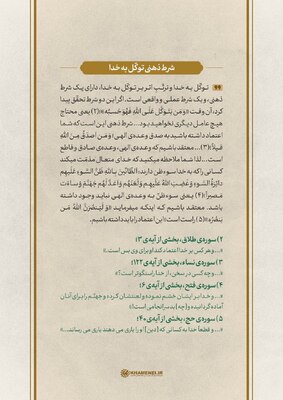 شرط ذهنی توکّل به خدا
توکّل به خدا و ترتّب اثر بر توکّل به خدا، دارای یک شرط
ذهنی، و یک شرط عملی و واقعی است. اگر این دو شرط تحقّق پیدا
کرد، آن وقت «وَ مَن یَتَوَکَّل عَلَی اللهِ فَهُوَ حَسبُه»(۲) یعنی محتاج
هیچ عامل دیگری نخواهید بود ... شرط ذهنی این است که شما
اعتماد داشته باشید به صدق وعده‌ی الهی؛ «وَ مَن اَصدَقُ مِنَ اللهِ
قیلاً»(۳) ... معتقد باشیم که وعده‌ی الهی، وعده‌ی صادق و قاطع
است ... لذا شما ملاحظه میکنید که خدای متعال مذمّت میکند
کسانی را که به خدا سوء ظن دارند؛ اَلظّانّینَ بِاللهِ ظَنَّ السَّوءِ عَلَیهِم
دائِرَةُ السَّوءِ وَ غَضِبَ اللهُ عَلَیهِم وَ لَعَنَهُم وَ اَعَدَّ لَهُم جَهَنَّمَ وَ ساءَت
مَصیراً(۴) یعنی سوء ظن به وعده‌ی الهی نباید وجود داشته
باشد. معتقد باشیم که اینکه میفرماید «وَ لَیَنصُرَنَّ اللهُ مَن
یَنصُرُه»(۵) راست است؛ این اعتماد را باید داشته باشیم.
۲) سوره‌ی طلاق، بخشی از آیه‌ی ۳؛
«... و هر کس بر خدا اعتماد کند او برای وی بس است...»
۳) سوره‌ی نساء، بخشی از آیه‌ی ۱۲۲؛
«... و چه کسی در سخن، از خدا راستگوتر است؟»
۴) سوره‌ی فتح، بخشی از آیه‌ی ۶؛
«... و خدا بر ایشان خشم نموده و لعنتشان کرده و جهنّم را برای آنان
آماده گردانیده و [چه] بد سرانجامی است!»
۵) سوره‌ی حج، بخشی از آیه‌ی ۴۰؛
«... و قطعاً خدا به کسانی که [دین] او را یاری می دهند یاری می رساند...»
KHAMENEI.IR